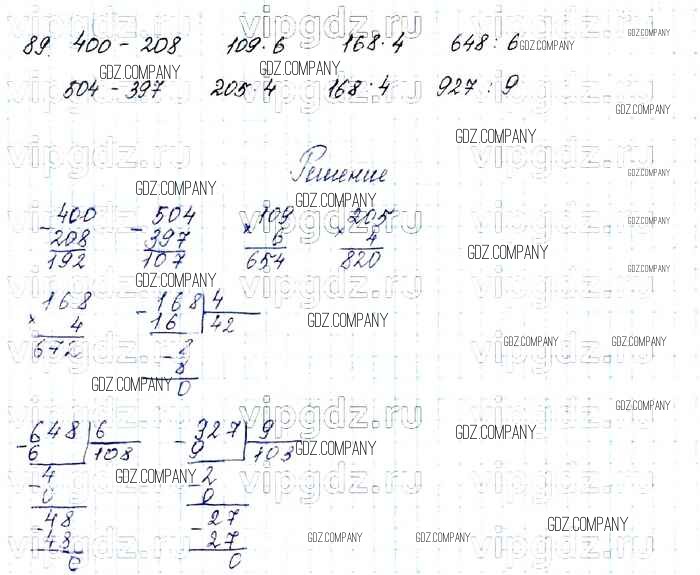 89. 400 - 208 109 · 6 168 · 4 648 : 6
504 - 397 205 · 4 168 : 4 927 : 9
Решение
- 400 - 504 × 109 × 205
208 397 6 4
192 107 654 820
× 168 - 168 4
4 16 42
672 - 8
8
0
- 648 6 - 927 9
6 108 9 103
- 4 - 2
0 0
- 48 - 27
48 27
0 0
vipgdz.ru
GDZ.COMPANY